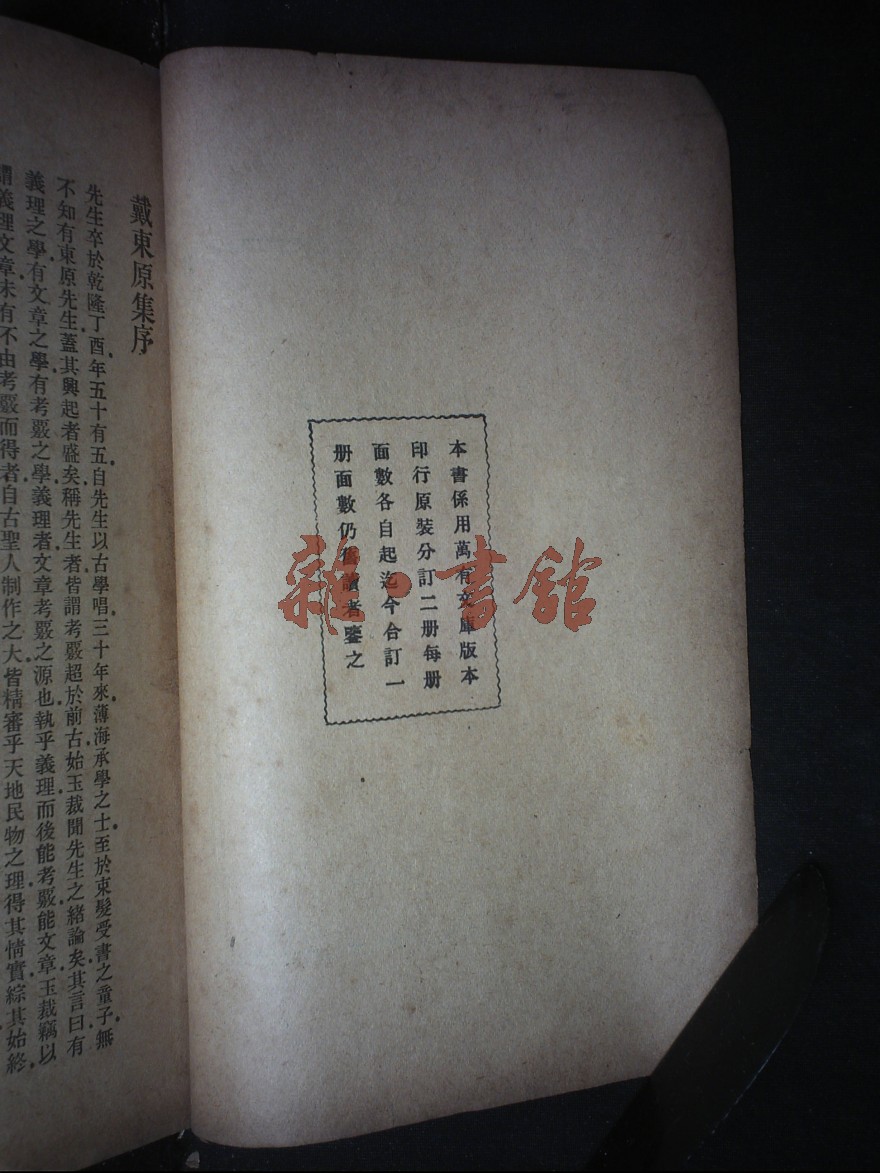 本書係用萬有文庫版本
印行原裝分訂二册每册
面數各自起迄今合訂一
册面數仍舊讀者鑒之
雜·書館
戴東原集序
先生卒於乾隆丁酉年五十有五自先生以古學唱三十年來薄海承學之士至於束髮受書之童子無
不知有東原先生蓋其興起者盛矣稱先生者皆謂考覈超於前古始玉裁聞先生之緒論矣其言曰有
義理之學有文章之學有考覈之學義理者文章考覈之源也執乎義理而後能考覈能文章玉裁竊以
謂義理文章未有不由考覈而得者自古聖人制作之大皆精審乎天地民物之理得其情實綜其始終